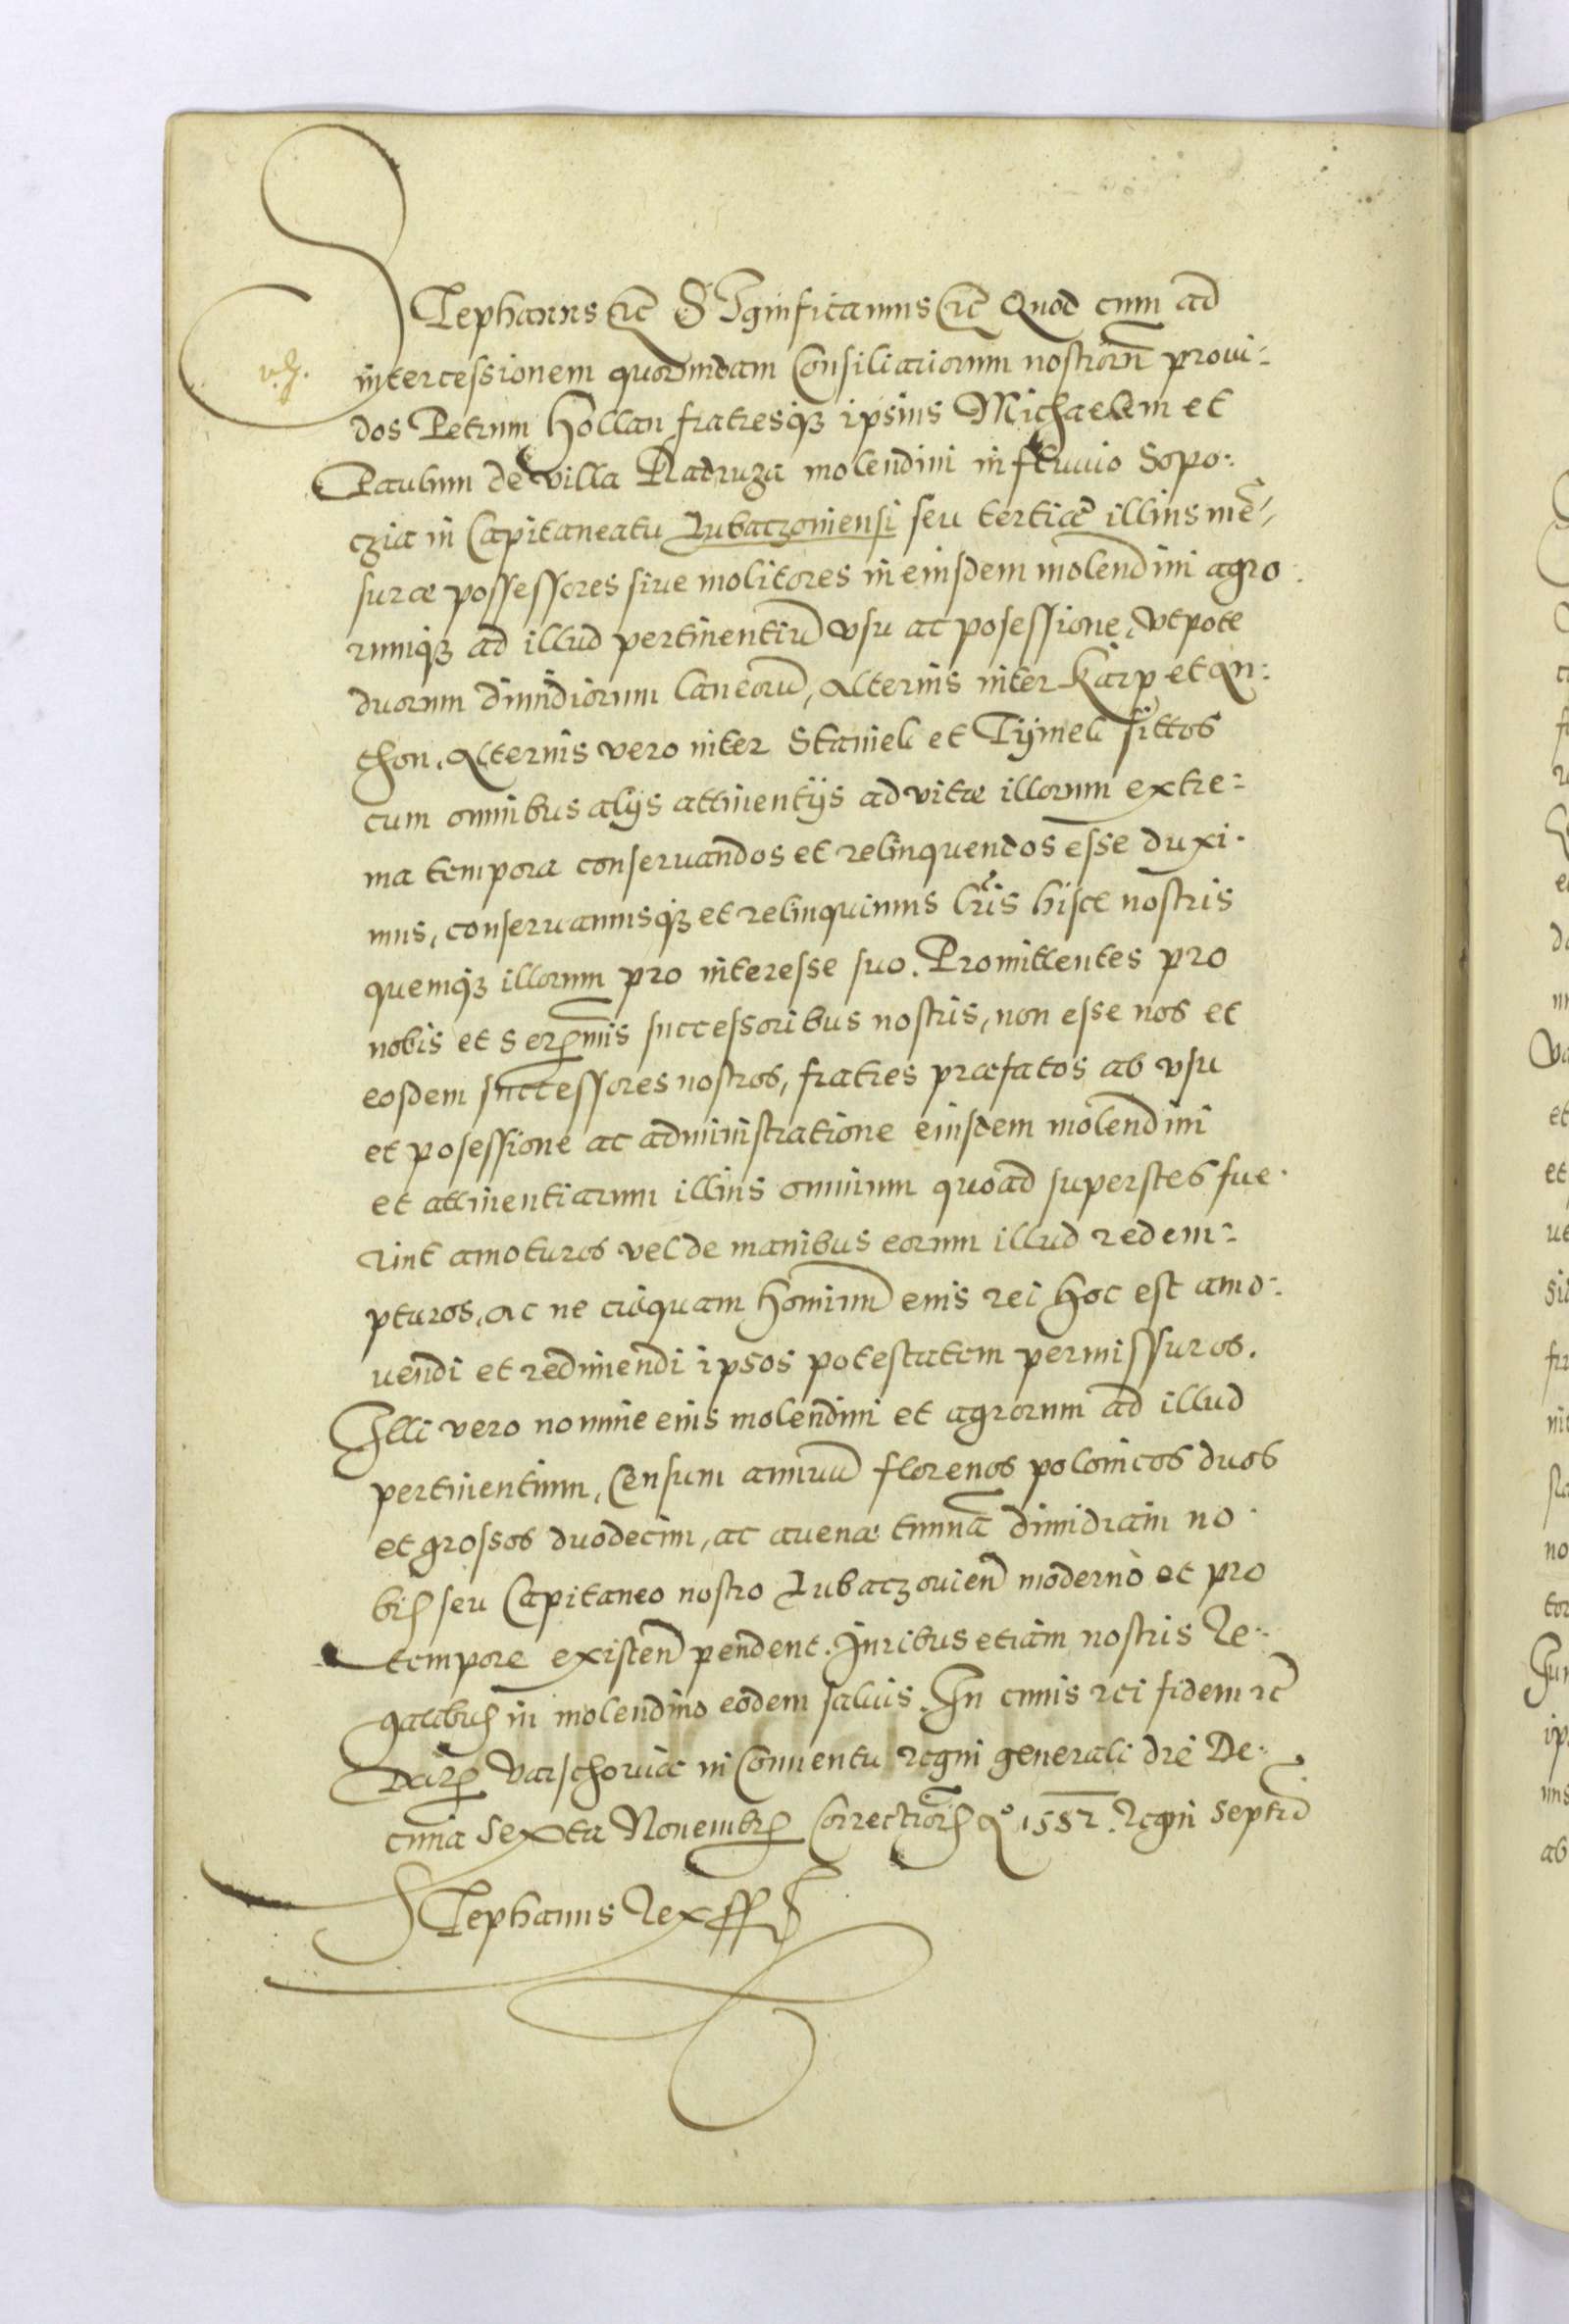 Stephanus etc Significamus etc Quod cum ad
intercessionem quorundam Consiliariorum nostrorũ proui-
dos Petrum Hollan fratresq3 ipsius Michaelem et
Paulum de villa Radruza molendini in fluuio Sopo-
czia in Capitaneatu Lubaczouiensi seu tertiæ illius mẽ-
suræ possessores siue molitores in eiusdem molendini agro
rumq3 ad illud pertinentiũ vsu ac posessione, vtpote
duorum dimidiorum laneorũ, alterius inter Karp et An-
thon, alterius vero inter Stanieli et Tymeli sittos
cum omnibus alijs attinentijs ad vitæ illorum extre-
ma tempora conseruandos et relinquendos esse duxi-
mus, conseruamusq3 et relinquimus lr̃is hisce nostris
quemq3 illorum pro interesse suo. Promittentes pro
nobis et Serẽmis successoribus nostris, non esse nos et
eosdem successores nostros, fratres præfatos ab vsu
et posessione ac administratione eiusdem molendini
et attinentiarum illius omnium quoad superstes fue-
rint amoturos vel de manibus eorum illud redem-
pturos, ac ne cuiquam hominũ eius rei hoc est amo-
uendi et redimendi ipsos potestatem permissuros.
Illi vero nomine eius molendini et agrorum ad illud
pertinentium, Censum annuũ florenos polonicos duos
et grossos duodecim, ac auenæ tunnã dimidiam no-
bis seu Capitaneo nostro Lubaczouien̄ moderno et pro
tempore existen̄ pendent. Iuribus etiam nostris Re-
galibus in molendino eodem saluis. In cuius rei fidem etc
Dat Varschouiæ in Conuentu regni generali die De-
cima Sexta Nouembr Correctionis Ao 1582. Regni Septio
Stephanus Rex sst